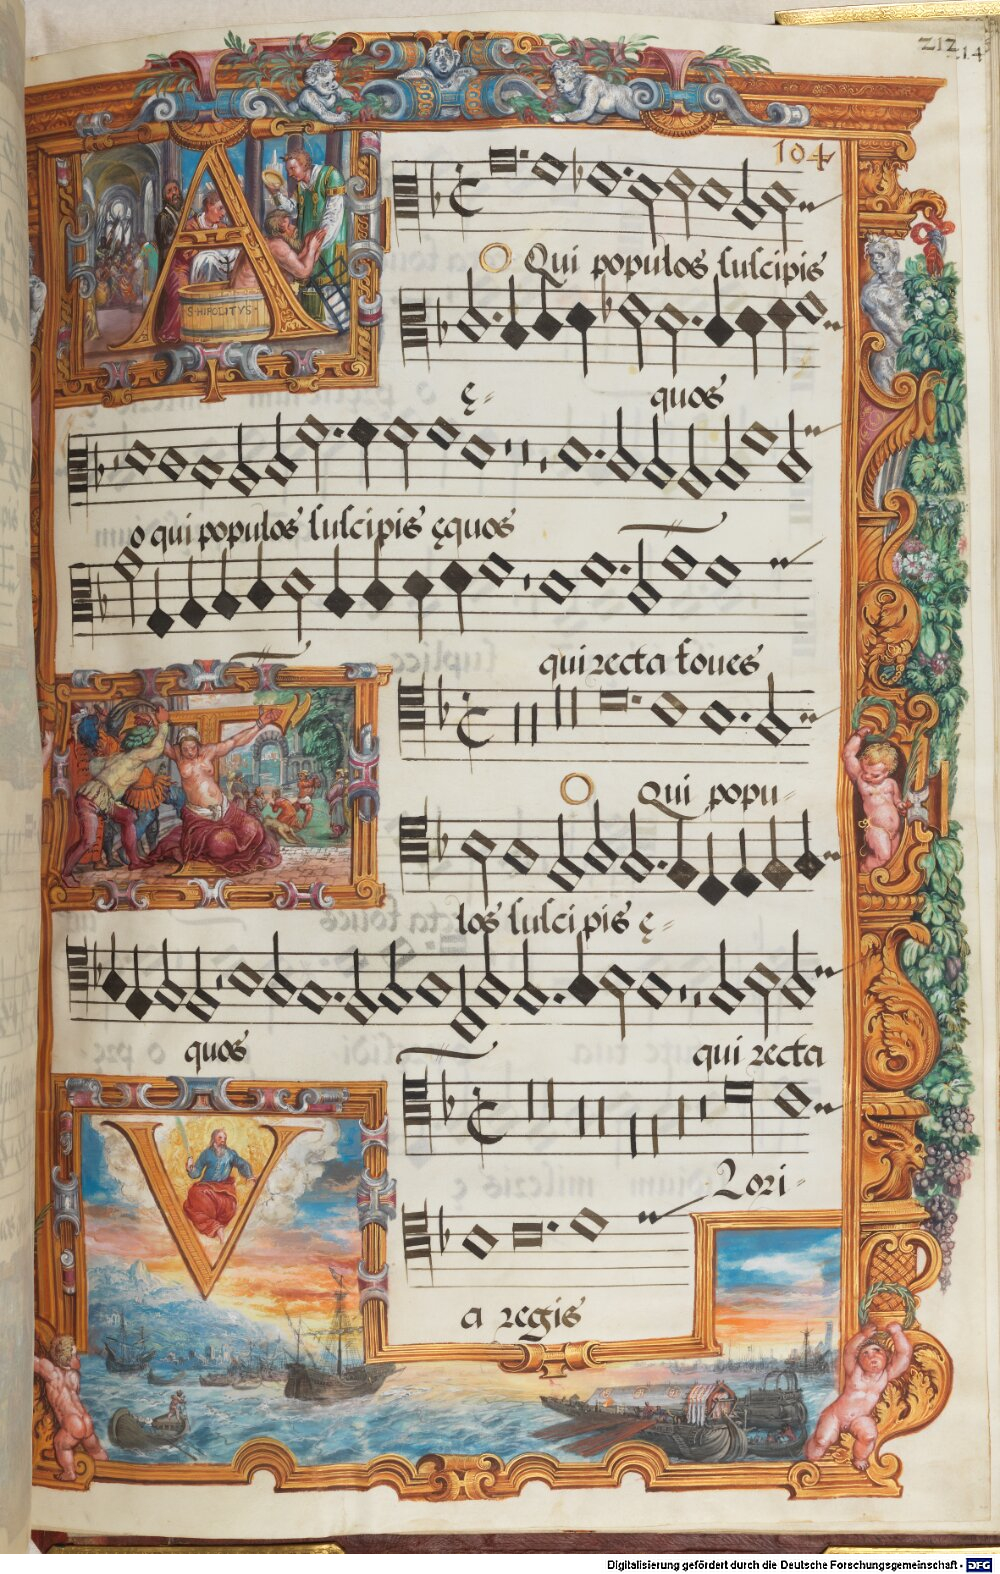 212
214
104
A
S · HIPOLITVS ·
O Qui populos suscipis
ę- quos
o qui populos suscipis ęquos
qui recta foues
T
O Qui popu-
los suscipis ę-
quos qui recta
V
Lori-
a regis
Digitalisierung gefördert durch die Deutsche Forschungsgemeinschaft - DFG